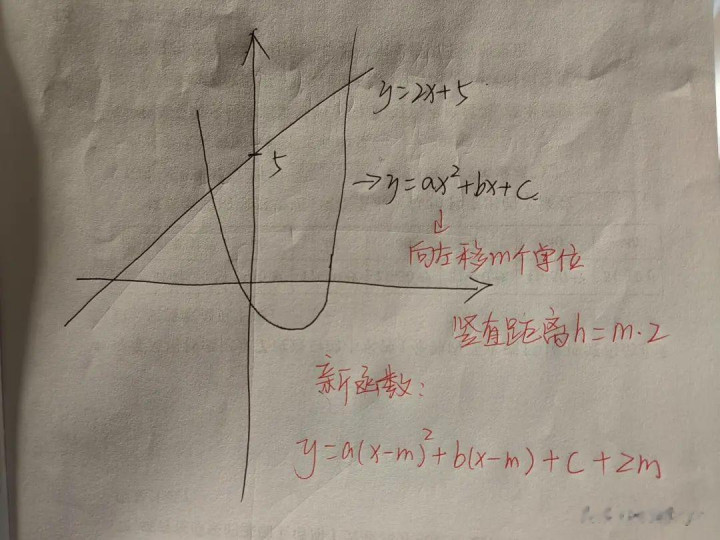 y=2x+5
5
→y=ax²+bx+c
↓
向左移m个单位
竖直距离h=m·2
新函数:
y=a(x-m)²+b(x-m)+c+2m